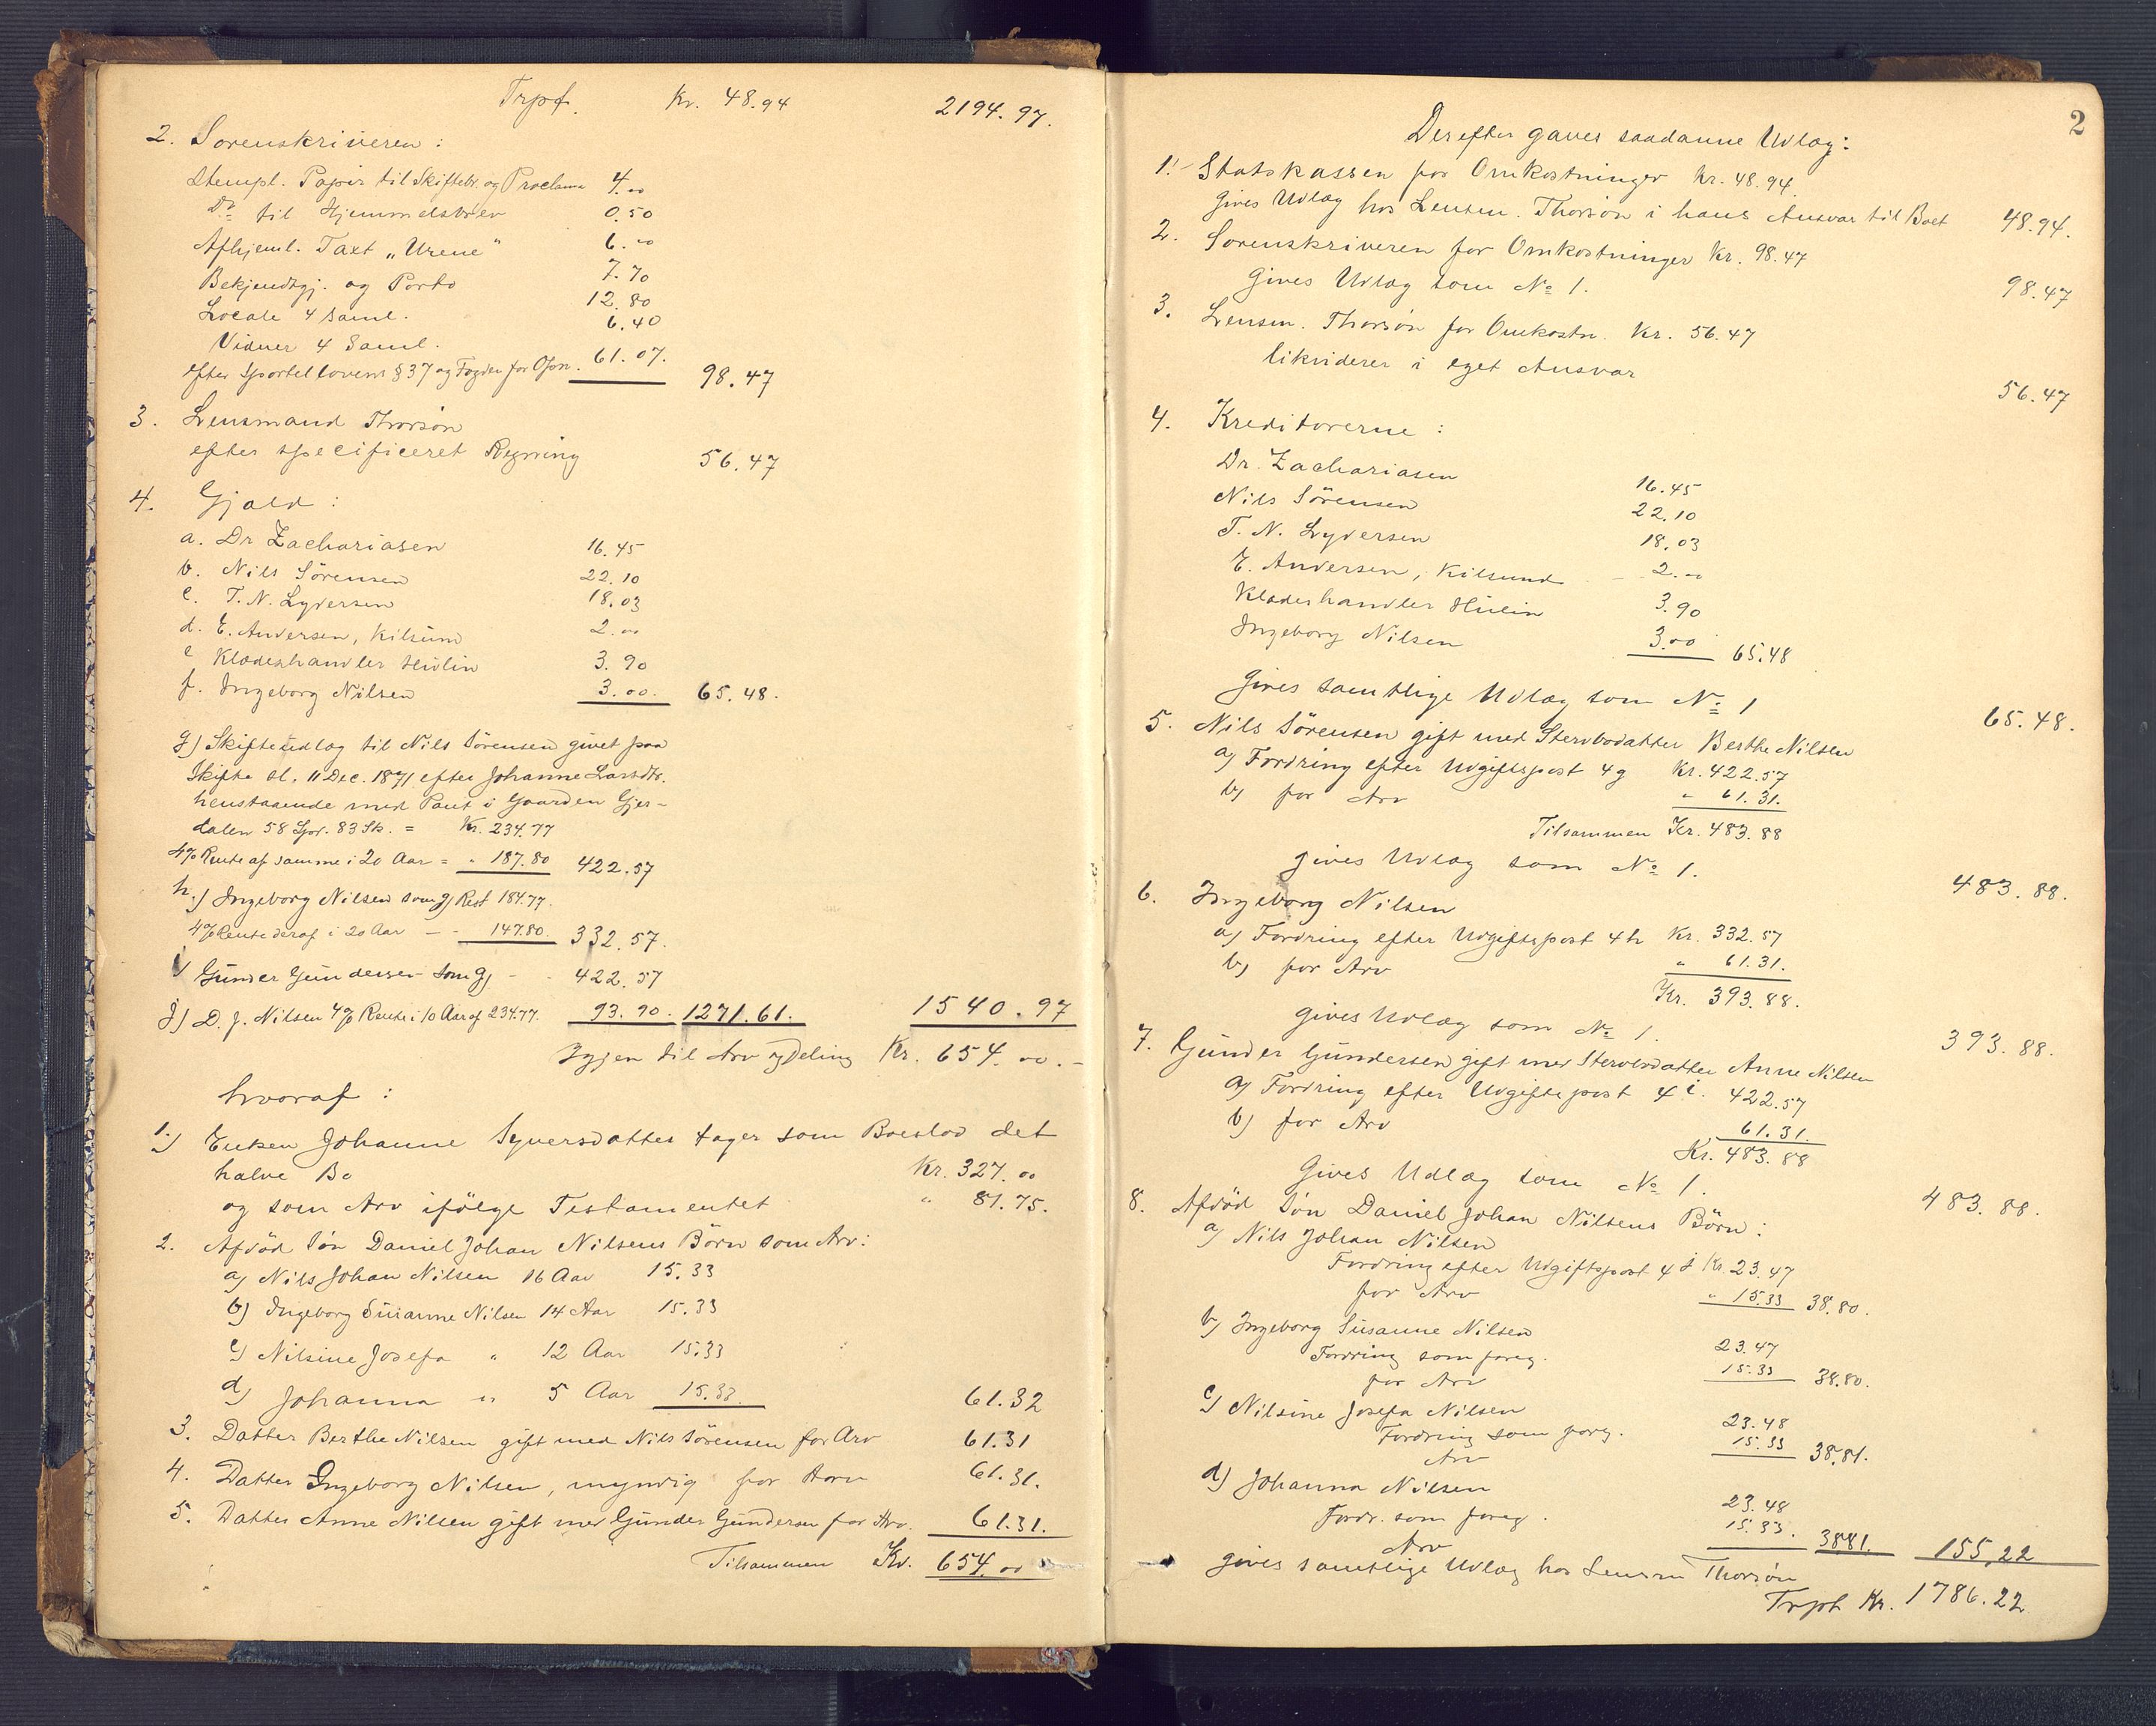 Trpf. Kr. 48.94 2194.97.
2. Sorenskriveren:
Stempl. Papir til Skiftebr. og Proclama 4.00
Do til Hjemmelsbrev 0.50
Afhjeml. Taxt „Urene" 6.00
Bekjendtgj. og Porto 7.70
Locale 4 Saml. 12.80
Vidner 4 Saml. 6.40
efter Sportellovens § 37 og Fogden for Ofsn. 61.07. 98.47
3. Lensmand Thorsøn
efter specificeret Regning 56.47
4. Gjæld:
a. Dr Zachariasen 16.45
b. Nils Sörensen 22.10
c. T. N. Lydersen 18.03
d. E. Andersen, Kilsund 2.00
e Klædeshandler Hulin 3.90
f. Ingeborg Nilsen 3.00. 65.48.
g) Skifteudlæg til Nils Sörensen givet paa
Skifte sl. 11 Dec. 1871 efter Johanne Larsdtr.
henstaaende med Pant i Gaarden Gjer-
dalen 58 Spd. 83 Sk. = Kr. 234.77
4% Rente af samme i 20 Aar = " 187.80 422.57
h.) Ingeborg Nilsen som g) Rest 184.77.
4% Rente deraf i 20 Aar — - 147.80. 332.57.
i/ Gunder Gundersen som g) - - 422.57
j) D. J. Nilsen 4% Rente i 10 Aar af 234.77. 93.90. 1271.61. 1540.97
Igjen til Arv og Deling Kr. 654.00.-
hvoraf:
1.) Enken Johanne Syversdatter tager som Boeslod det
halve Bo Kr. 327.00
og som Arv ifölge Testamentet " 81.75.
2. Afdöd Sön Daniel Johan Nilsens Börn som Arv:
a) Nils Johan Nilsen 16 Aar 15.33
b) Ingeborg Susanne Nilsen 14 Aar 15.33
c) Nilsine Josefa " 12 Aar 15.33
d) Johanna " 5 Aar 15.33. 61.32
3. Datter Berthe Nilsen gift med Nils Sörensen for Arv 61.31
4. Datter Ingeborg Nilsen, myndig for Arv 61.31.
5. Datter Anne Nilsen gift med Gunder Gundersen for Arv. 61.31.
Tilsammen Kr. 654.00
2
Derefter gaves saadanne Udlæg:
1. Statskassen for Omkostninger Kr. 48.94.
gives Udlæg hos Lensm. Thorsøn i hans Ansvar til Boet 48.94.
2. Sorenskriveren for Omkostninger Kr. 98.47
gives Udlæg som No 1. 98.47
3. Lensm. Thorsøn for Omkostn. Kr. 56.47
likviderer i eget Ansvar 56.47
4. Kreditorerne:
Dr. Zachariasen 16.45
Nils Sörensen 22.10
T. N. Lydersen 18.03
E. Andersen, Kilsund 2.00
Klædeshandler Hulin 3.90
Ingeborg Nilsen 3.00 65.48
gives samtlige Udlæg som No 1 65.48.
5. Nils Sörensen gift med Stervbodatter Berthe Nilsen
a) Fordring efter Udgiftspost 4 g Kr. 422.57
b) for Arv " 61.31.
Tilsammen Kr. 483.88
gives Udlæg som No 1. 483.88.
6. Ingeborg Nilsen
a) Fordring efter Udgiftspost 4 h Kr. 332.57
b) for Arv " 61.31.
Kr. 393.88.
gives Udlæg som No 1. 393.88.
7. Gunder Gundersen gift med Stervbodatter Anne Nilsen
a) Fordring efter Udgiftspost 4 i. 422.57
b) for Arv 61.31.
Kr. 483.88
Gives Udlæg som No 1. 483.88.
8. Afdöd Sön Daniel Johan Nilsens Börn:
a) Nils Johan Nilsen
Fordring efter Udgiftspost 4 j Kr. 23.47
for Arv " 15.33 38.80.
b) Ingeborg Susanne Nilsen
Fordring som foreg. 23.47
for Arv 15.33 38.80.
c) Nilsine Josefa Nilsen
Fordring som foreg. 23.48
Arv 15.33 38.81.
d) Johanna Nilsen
Fordr. som foreg. 23.48
Arv 15.33. 38.81. 155.22
gives samtlige Udlæg hos Lensm Thorsøn
Trpt Kr. 1786.22